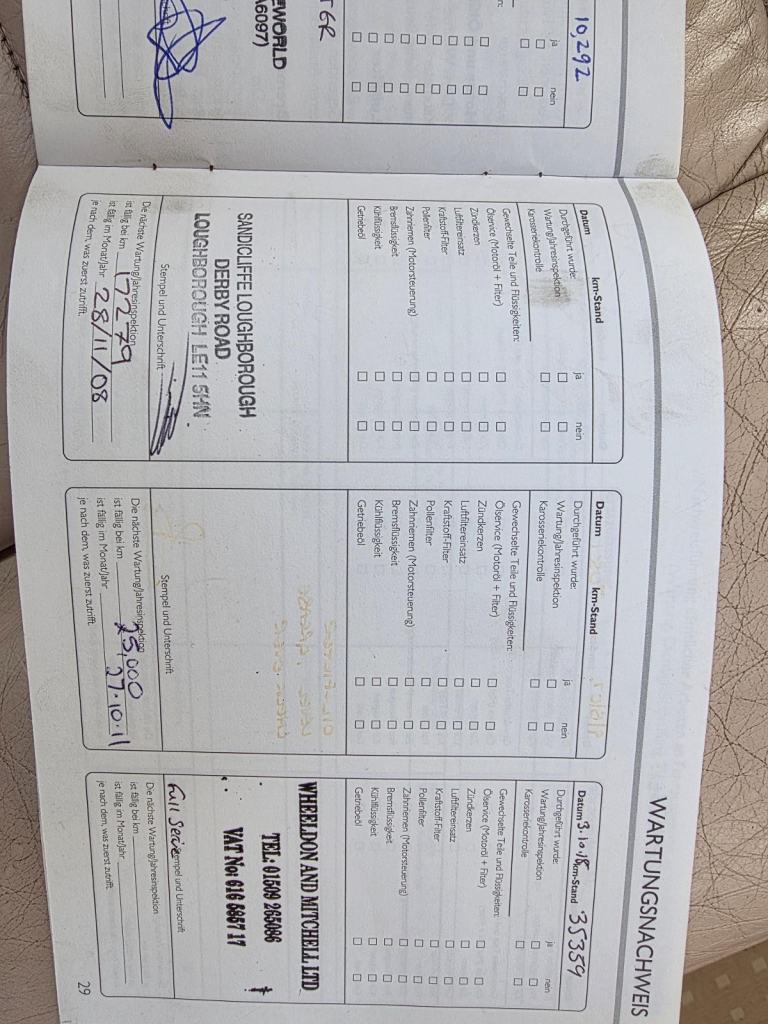 10,292
ja
nein
T GR
EWORLD
A6097)
WARTUNGSNACHWEIS
Datum
km-Stand
Durchgeführt wurde:
ja
nein
Wartung/Jahresinspektion
Karosseriekontrolle
Gewechselte Teile und Flüssigkeiten:
Ölservice (Motoröl + Filter)
Zündkerzen
Luftfiltereinsatz
Kraftstoff-Filter
Pollenfilter
Zahnriemen (Motorsteuerung)
Bremsflüssigkeit
Kühlflüssigkeit
Getriebeöl
SANDICLIFFE LOUGHBOROUGH
DERBY ROAD
LOUGHBOROUGH LE11 5HN
Stempel und Unterschrift
Die nächste Wartung/Jahresinspektion
ist fällig bei km 17279
ist fällig im Monat/Jahr 28/11/08
je nach dem, was zuerst zutrifft.
Datum
km-Stand
Durchgeführt wurde:
ja
nein
Wartung/Jahresinspektion
Karosseriekontrolle
Gewechselte Teile und Flüssigkeiten:
Ölservice (Motoröl + Filter)
Zündkerzen
Luftfiltereinsatz
Kraftstoff-Filter
Pollenfilter
Zahnriemen (Motorsteuerung)
Bremsflüssigkeit
Kühlflüssigkeit
Getriebeöl
Stempel und Unterschrift
Die nächste Wartung/Jahresinspektion
ist fällig bei km 25,000
ist fällig im Monat/Jahr 27.10.11
je nach dem, was zuerst zutrifft.
Datum 3.10.18 km-Stand 35359
Durchgeführt wurde:
ja
nein
Wartung/Jahresinspektion
Karosseriekontrolle
Gewechselte Teile und Flüssigkeiten:
Ölservice (Motoröl + Filter)
Zündkerzen
Luftfiltereinsatz
Kraftstoff-Filter
Pollenfilter
Zahnriemen (Motorsteuerung)
Bremsflüssigkeit
Kühlflüssigkeit
Getriebeöl
WHEELDON AND MITCHELL LTD
TEL: 01509 265086
VAT No: 616 6887 17
Full Seive
Stempel und Unterschrift
Die nächste Wartung/Jahresinspektion
ist fällig bei km
ist fällig im Monat/Jahr
je nach dem, was zuerst zutrifft.
29